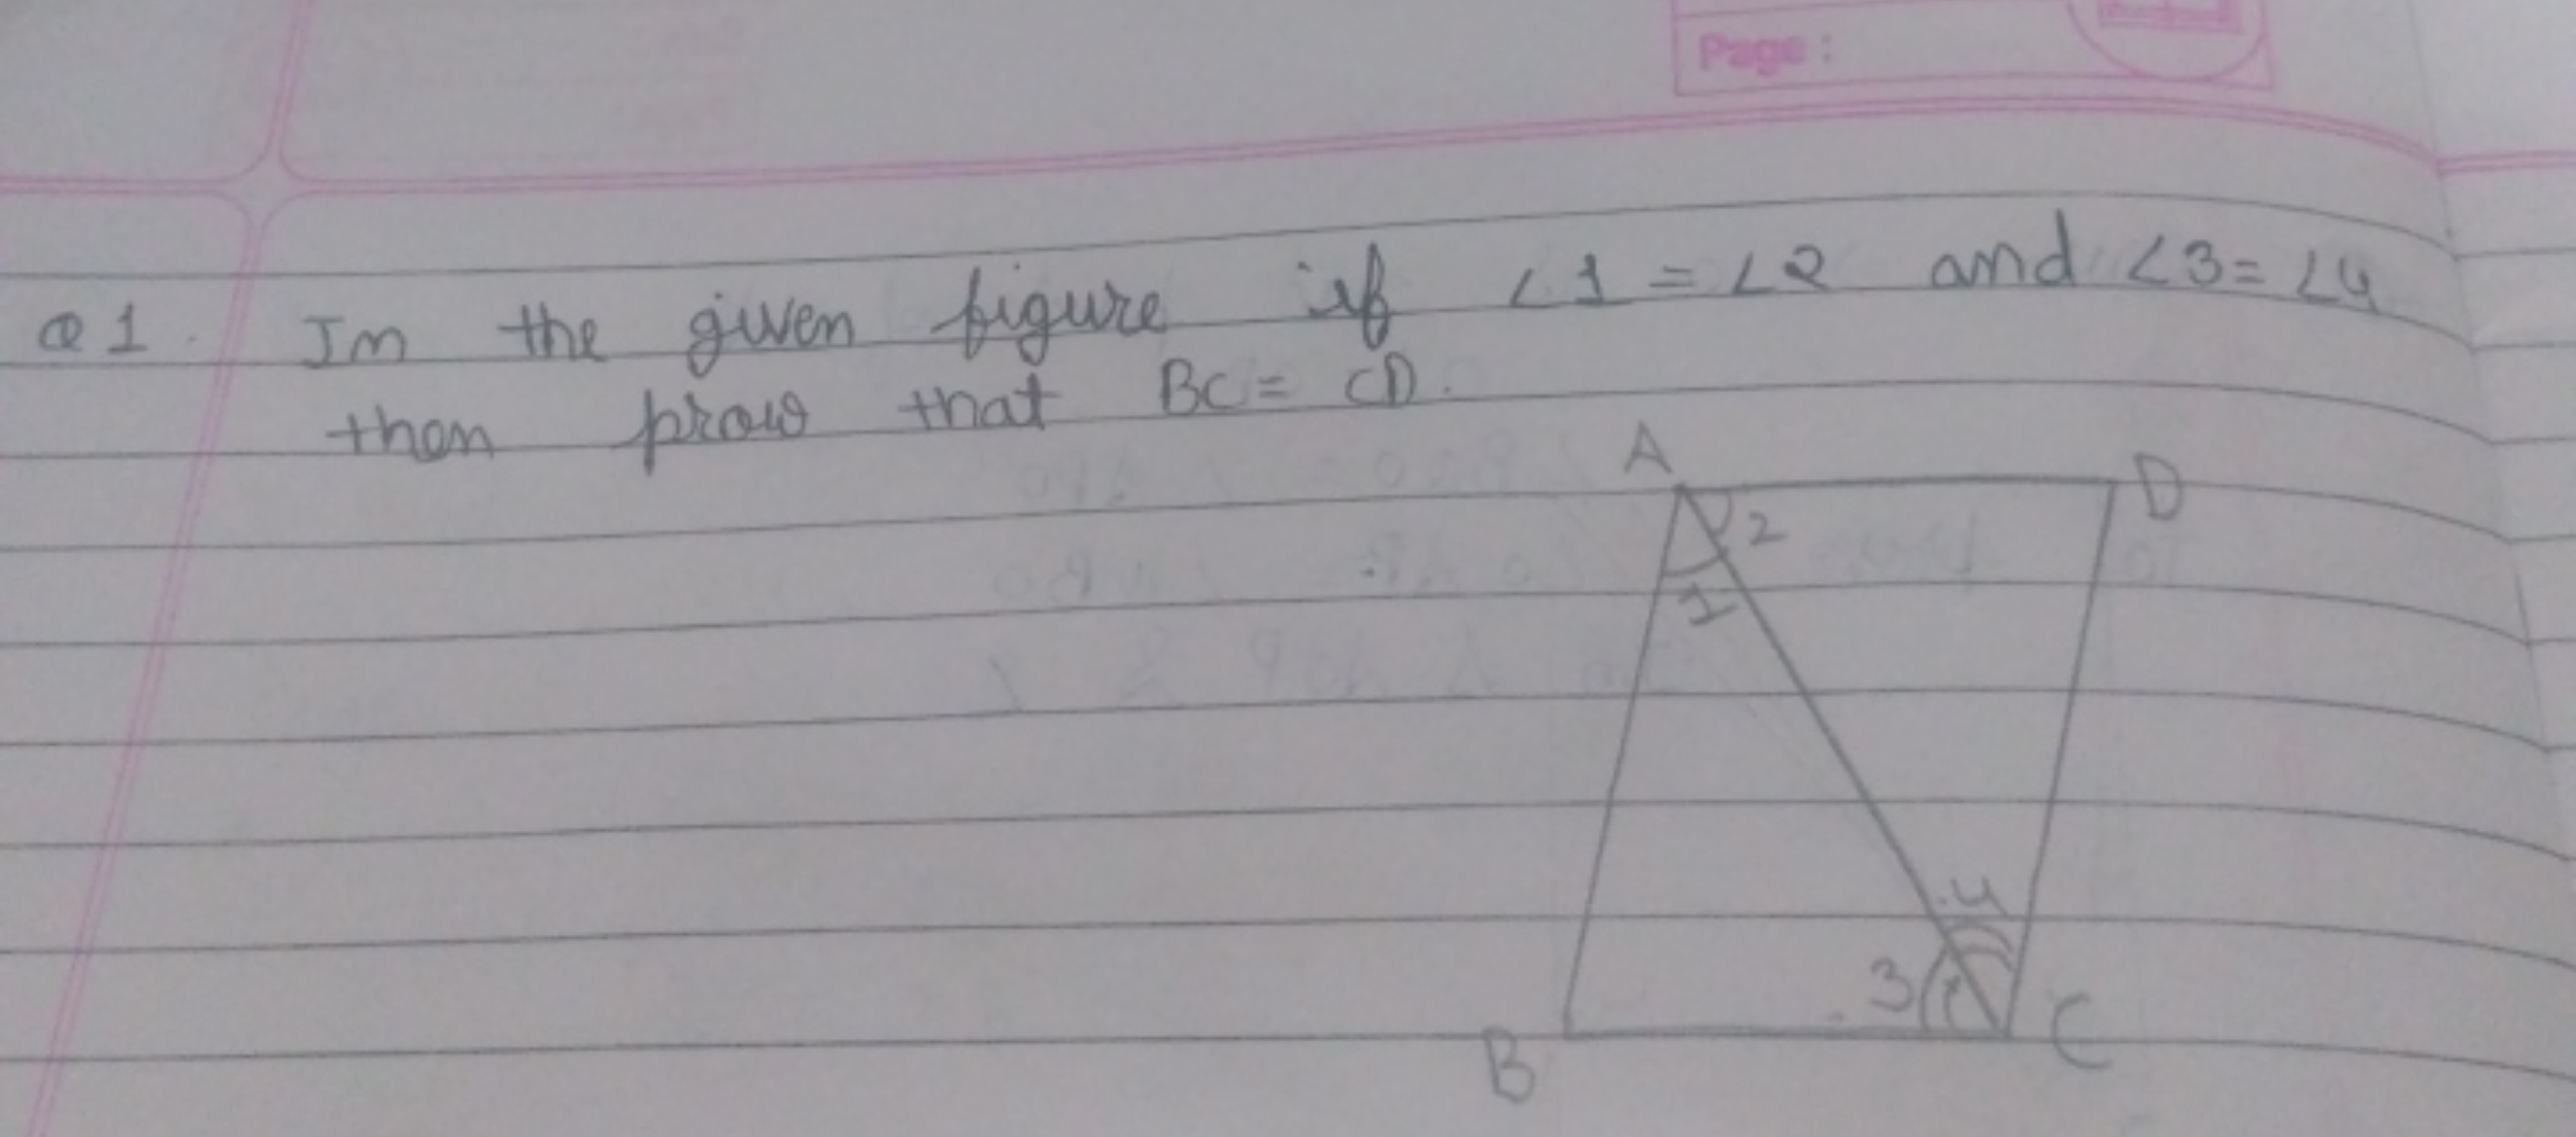 Page :
Q1. In the given figure if ∠1 = ∠2 and ∠3 = ∠4
then prove that BC = CD.
A
D
2
1
4
3
B
C